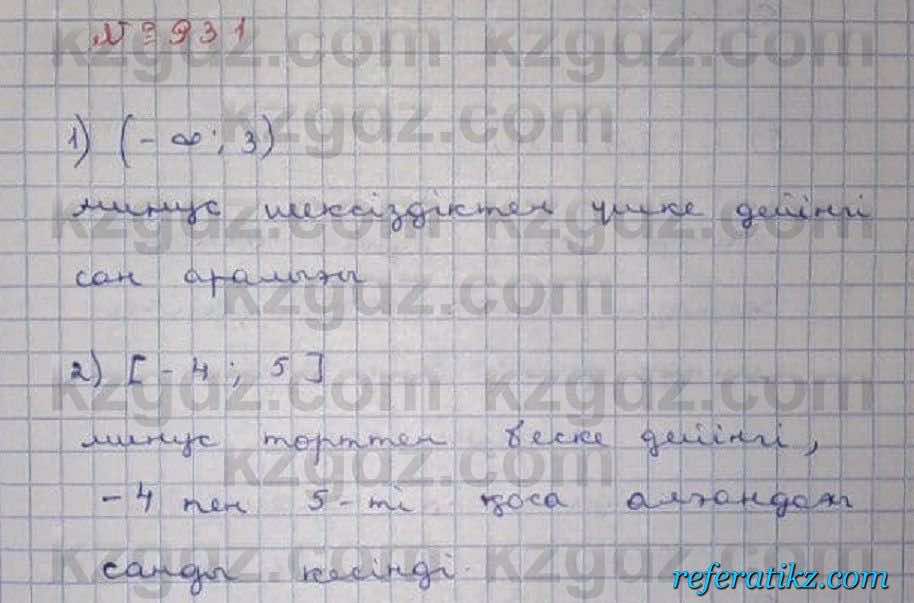 № 931
1) (-∞; 3)
минус шексіздіктен үшке дейінгі
сан аралығы
2) [-4; 5]
минус төрттен беске дейінгі,
-4 пен 5-ті қоса алғандағы
санды кесінді.
referatikz.com
kzgdz.com
kzgdz.com
kzgdz.com
kzgdz.com
kzgdz.com
kzgdz.com
kzgdz.com